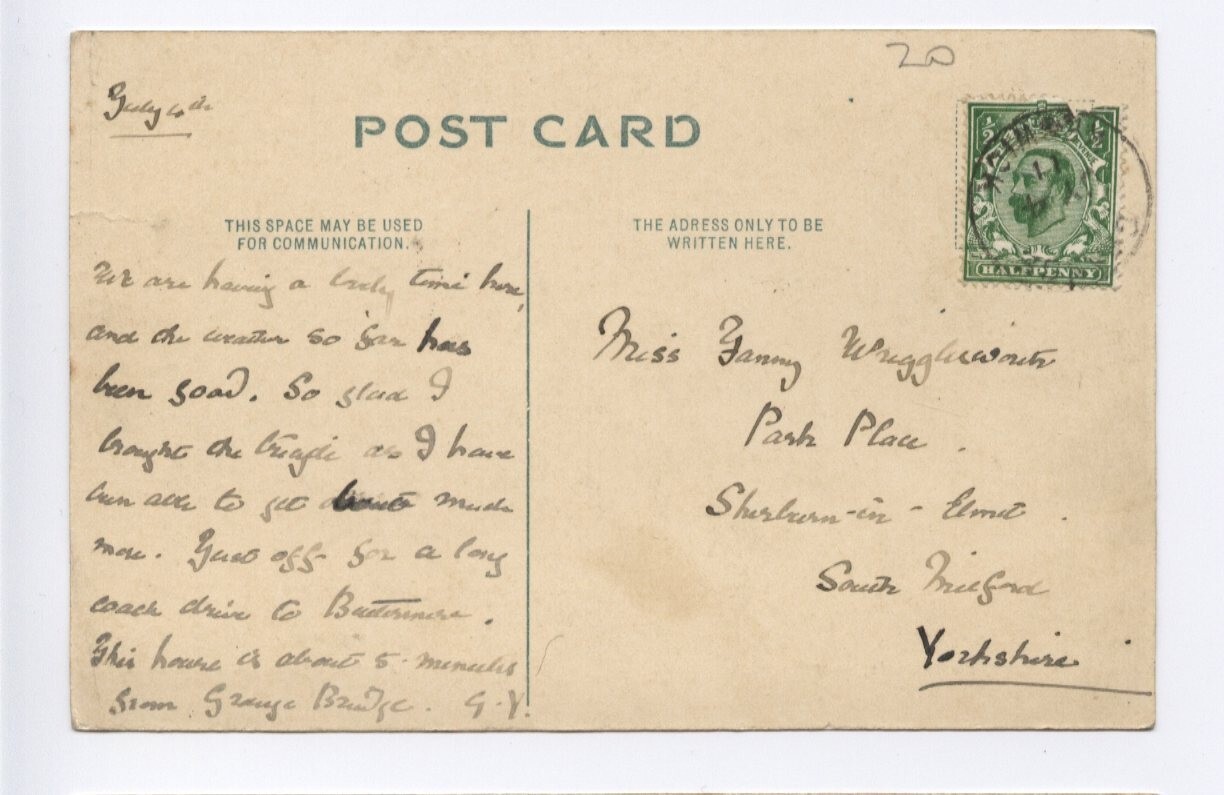 20
July 4th
POST CARD
THIS SPACE MAY BE USED
FOR COMMUNICATION.
We are having a lovely time here,
and the weather so far has
been good. So glad I
brought the bicycle as I have
been able to get about much
more. Just off for a long
coach drive to Buttermere.
This house is about 5 minutes
from Grange Bridge. G.Y.
THE ADRESS ONLY TO BE
WRITTEN HERE.
Miss Fanny Wrigglesworth
Park Place.
Sherburn-in-Elmet.
South Milford
Yorkshire
½ ½
HALFPENNY